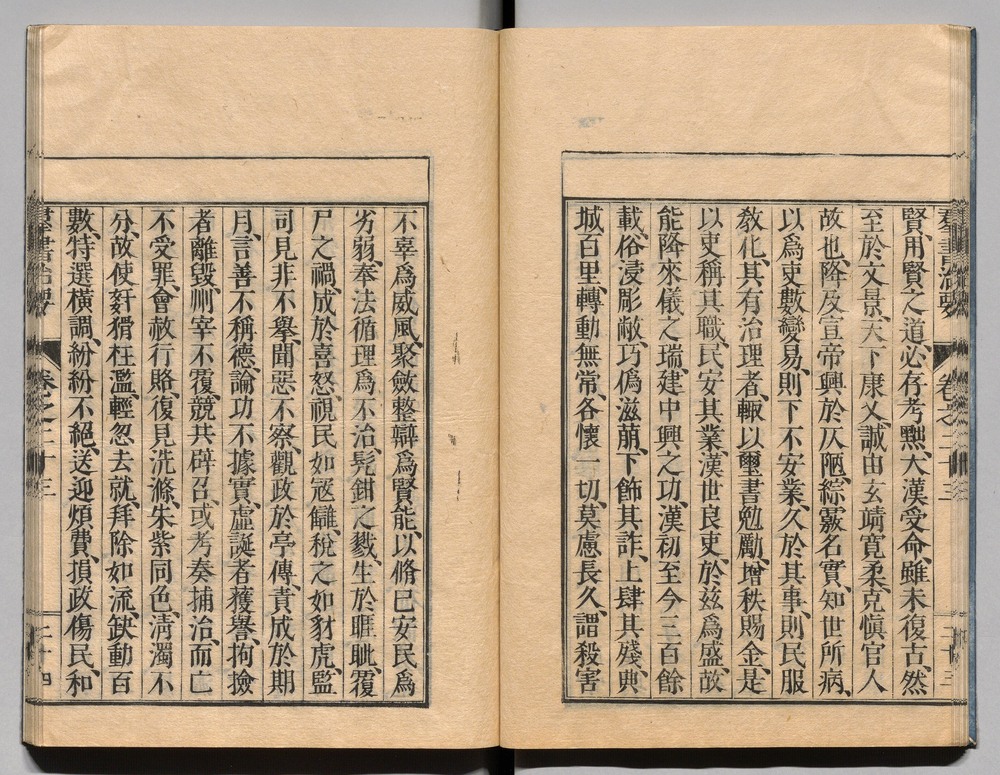 賢、用賢之道、必存考黜、大漢受命、雖未復古、然
至於文景、天下康乂、誠由玄靖寬柔、克愼官人
故也、降及宣帝、興於仄陋、綜覈名實、知世所病、
以爲吏數變易、則下不安業、久於其事、則民服
敎化、其有治理者、輙以璽書勉勵、增秩賜金、是
以吏稱其職、民安其業、漢世良吏、於兹爲盛、故
能降來儀之瑞、建中興之功、漢初至今、三百餘
載、俗浸彫敝、巧僞滋萠、下飾其詐、上肆其殘、典
城百里、轉動無常、各懷一切、莫慮長久、謂殺害
群書治要 卷之二十三 二十三
不辜爲威風、聚斂整辯爲賢能、以脩己安民爲
劣弱、奉法循理爲不治、髡鉗之戮、生於睚眦、覆
尸之禍、成於喜怒、視民如寇讎、稅之如豺虎、監
司見非不擧、聞惡不察、觀政於亭傳、責成於期
月、言善不稱德、論功不據實、虛誕者獲譽、拘撿
者離毀、州宰不覆、競共辟召、或考奏捕治、而亡
不受罪、會赦行賂、復見洗滌、朱紫同色、淸濁不
分、故使姧猾枉濫、輕忽去就、拜除如流、缺動百
數、特選橫調、紛紛不絕、送迎煩費、損政傷民、和
群書治要 卷之二十三 二十四